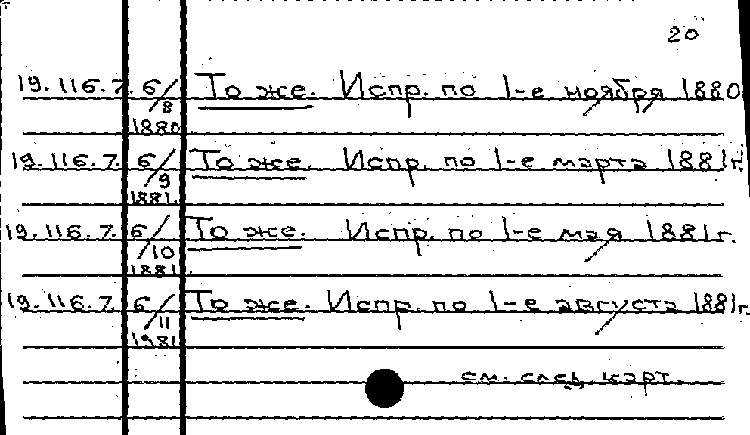 20
19.116.7. 6/8 То же. Испр. по 1-е ноября 1880
1880
19.116.7. 6/9 То же. Испр. по 1-е марта 1881г.
1881.
19.116.7. 6/10 То же. Испр. по 1-е мая 1881г.
1881.
19.116.7. 6/11 То же. Испр. по 1-е августа 1881г.
1981
см. след. карт.